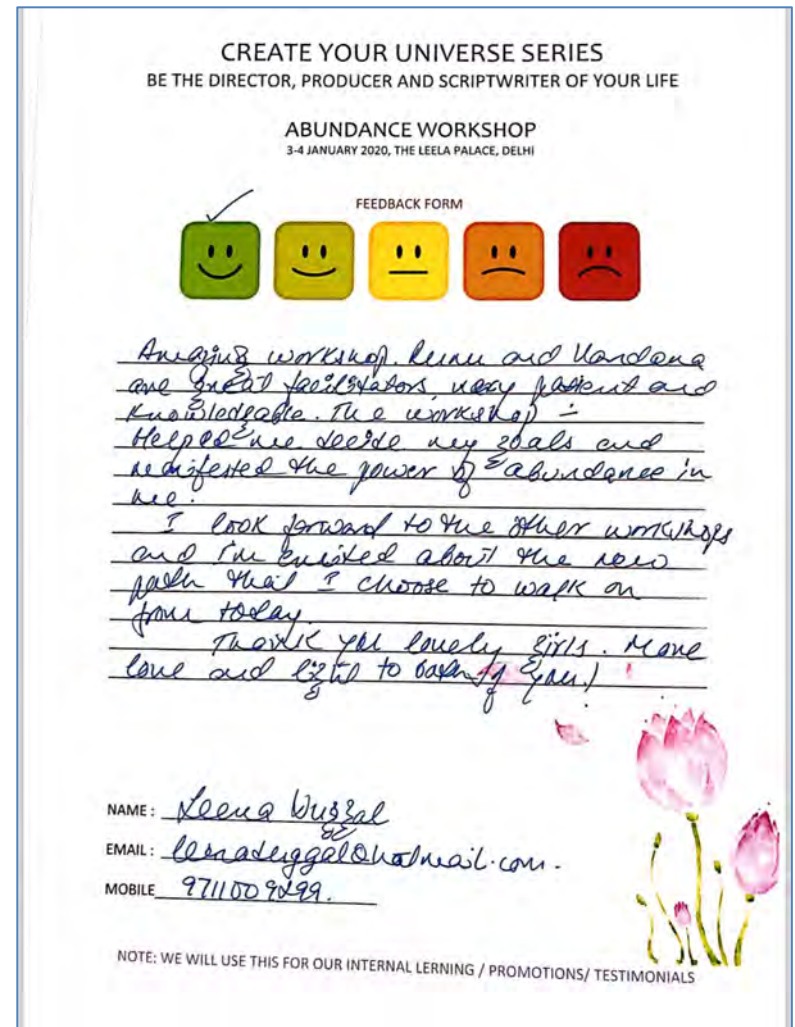 CREATE YOUR UNIVERSE SERIES
BE THE DIRECTOR, PRODUCER AND SCRIPTWRITER OF YOUR LIFE
ABUNDANCE WORKSHOP
3-4 JANUARY 2020, THE LEELA PALACE, DELHI
FEEDBACK FORM
Amazing workshop. Renu and Vandana
are great facilitators, very patient and
knowledgeable. The workshop -
Helped me decide my goals and
manifested the power of abundance in
me.
I look forward to the other workshops
and I'm excited about the new
path that I choose to walk on
from today.
Thank you lovely girls. More
love and light to both of you!
NAME: Leena Duggal
EMAIL: leenaduggal@hotmail.com.
MOBILE
NOTE: WE WILL USE THIS FOR OUR INTERNAL LERNING / PROMOTIONS/ TESTIMONIALS